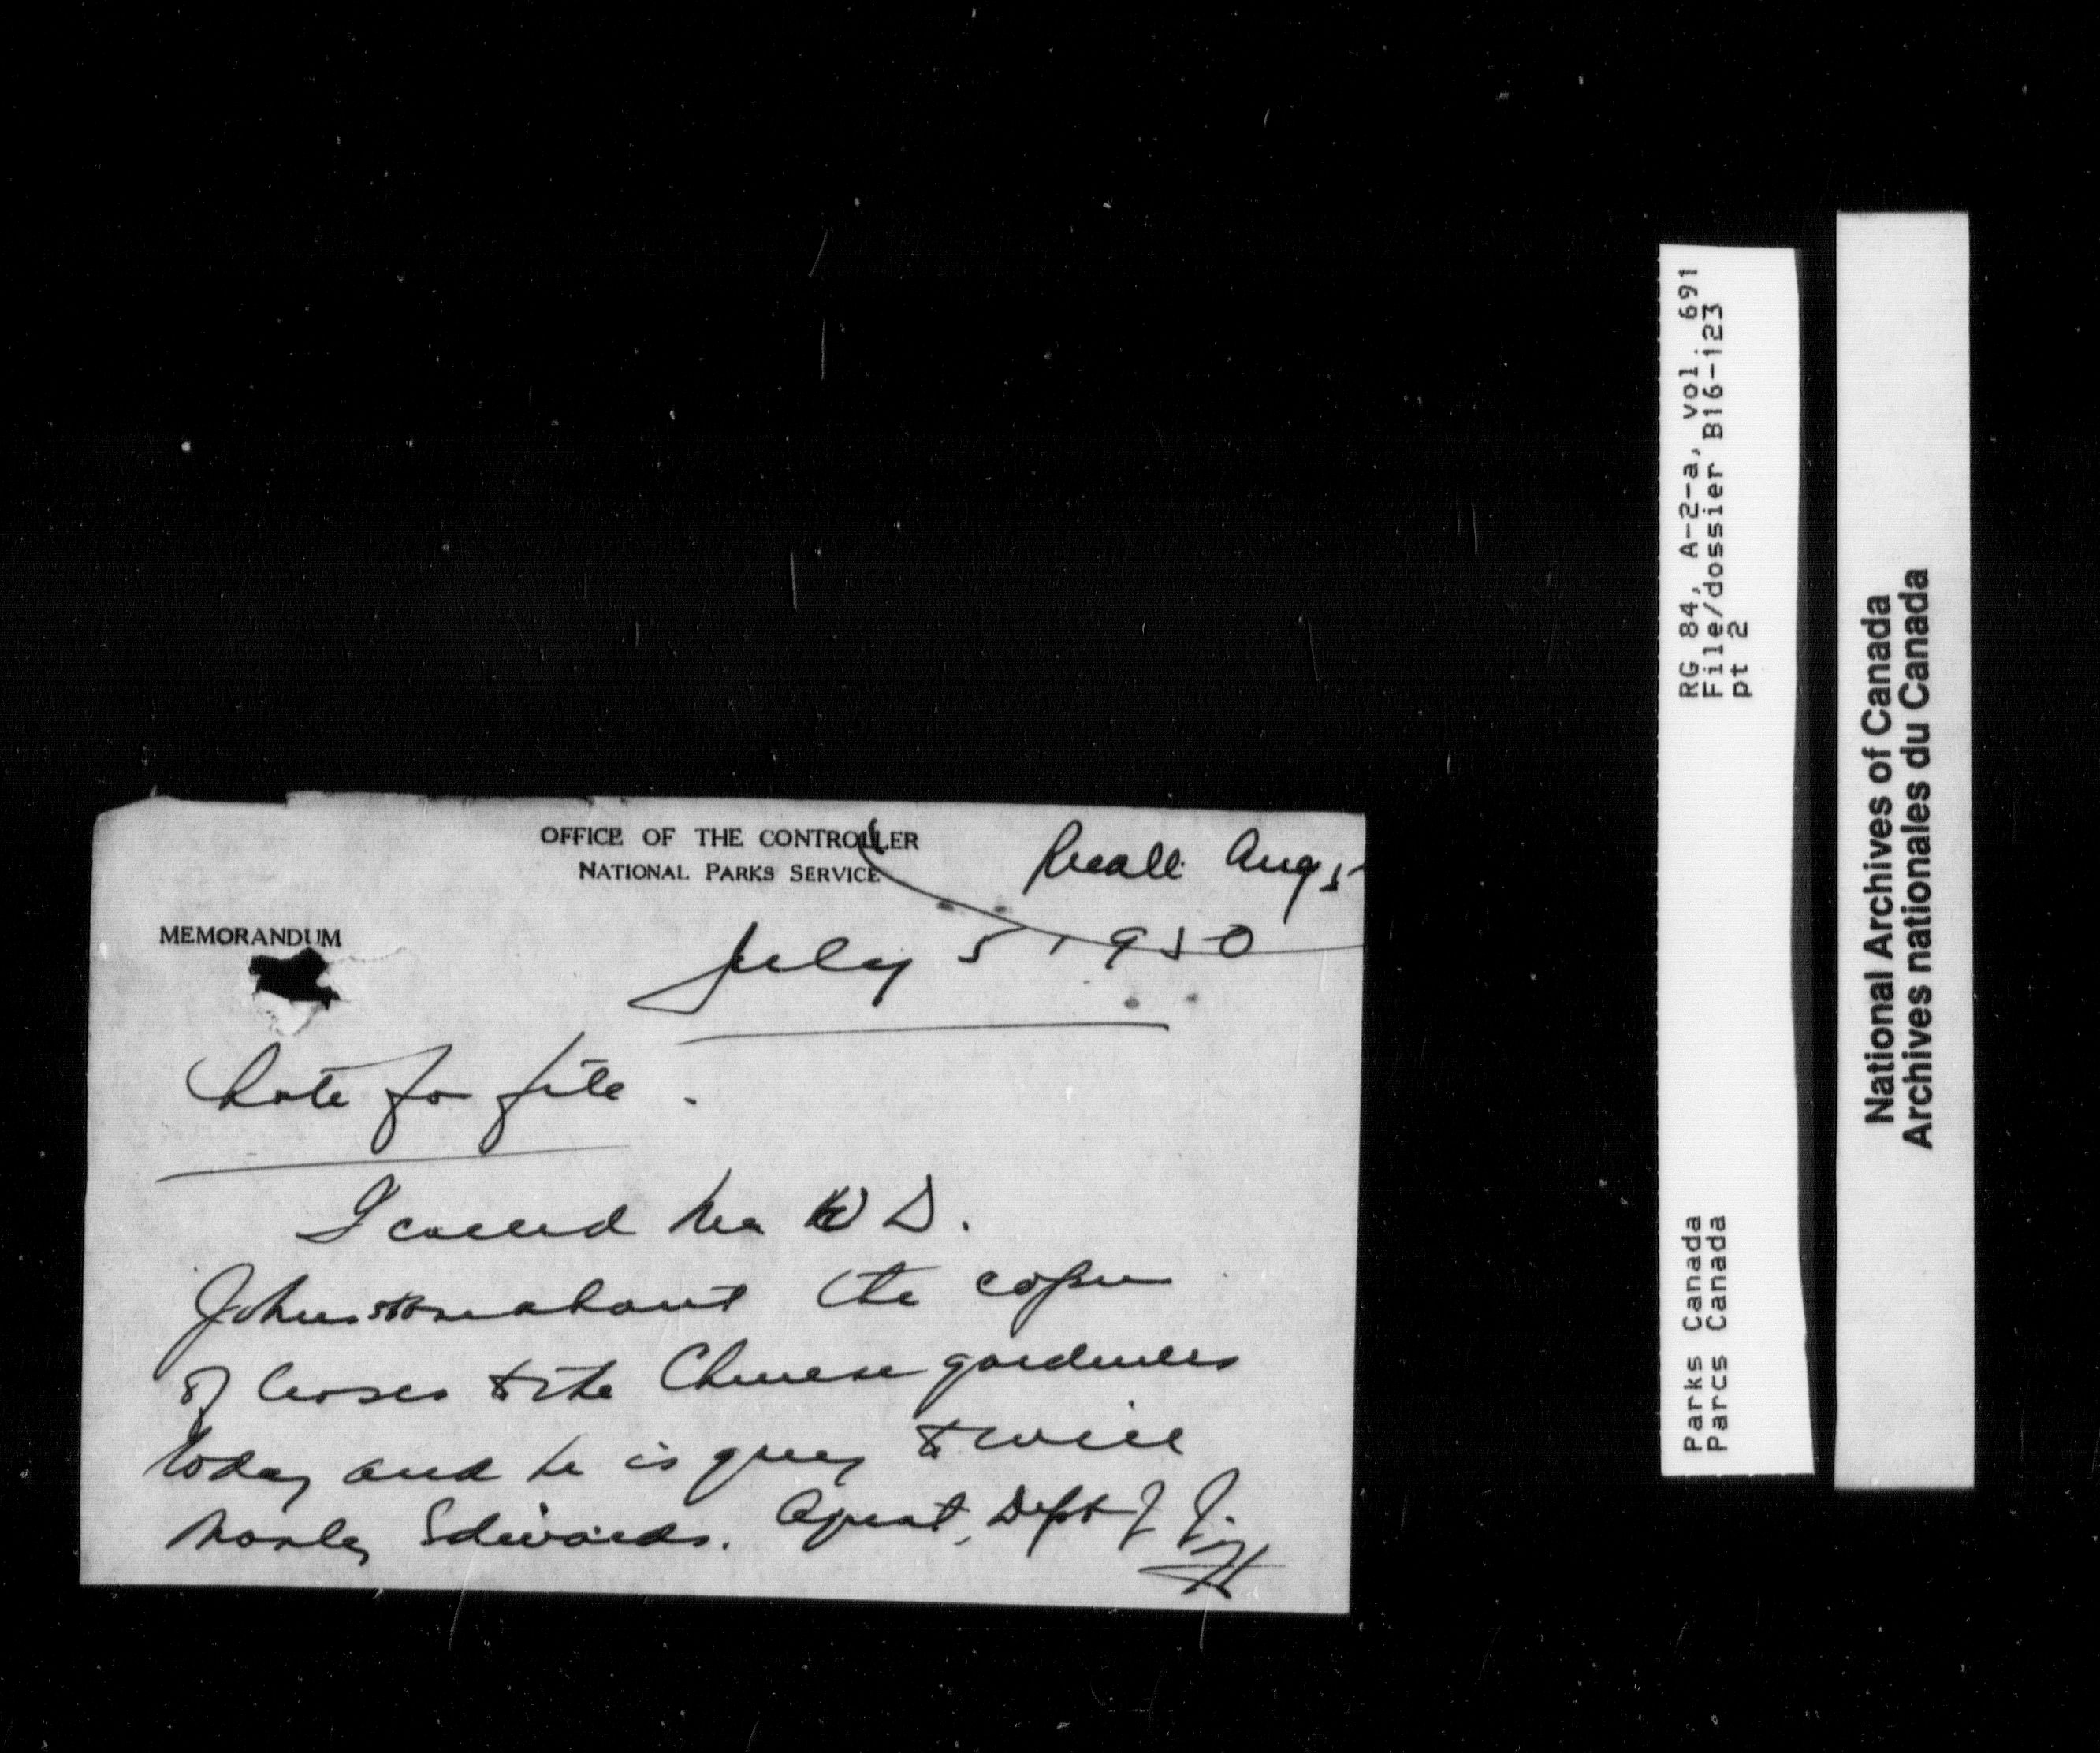 OFFICE OF THE CONTROLLER
NATIONAL PARKS SERVICE
Recall Aug 5
MEMORANDUM
July 5 1950
Note for file.
I called Mr W D.
Johnston about the copies
of leases to the Chinese gardeners
today and he is going to write
Manley Edwards. Agent, Dept of J.
RG 84, A-2-a, vol. 691
File/dossier B16-123
pt 2
Parks Canada
Parcs Canada
National Archives of Canada
Archives nationales du Canada